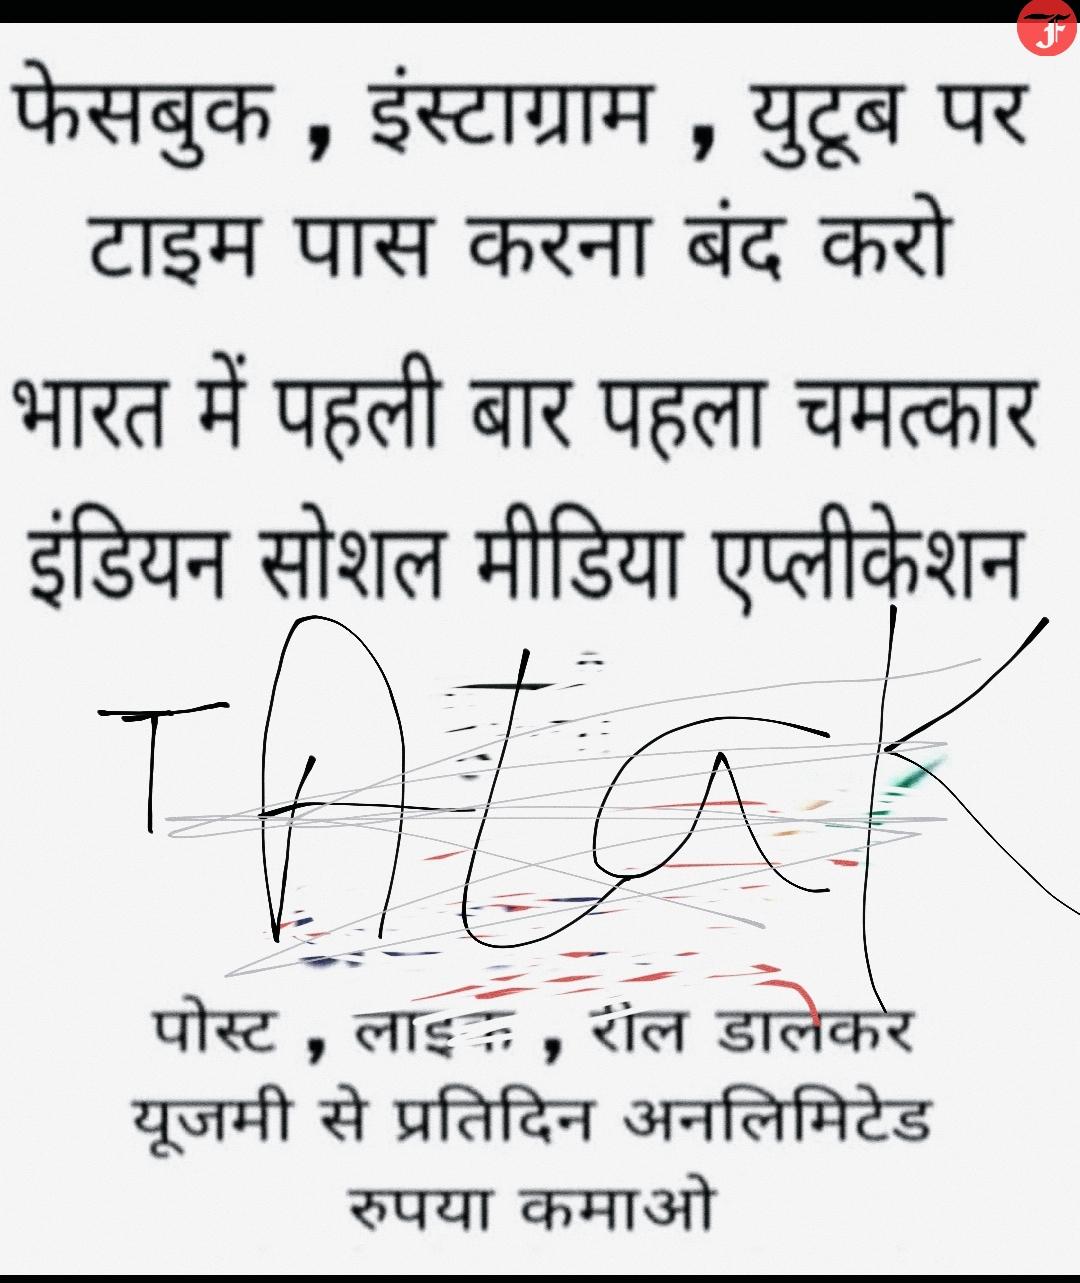 फेसबुक , इंस्टाग्राम , युटूब पर
टाइम पास करना बंद करो
भारत में पहली बार पहला चमत्कार
इंडियन सोशल मीडिया एप्लीकेशन
TALaK
पोस्ट , लाइक , रील डालकर
यूजमी से प्रतिदिन अनलिमिटेड
रुपया कमाओ